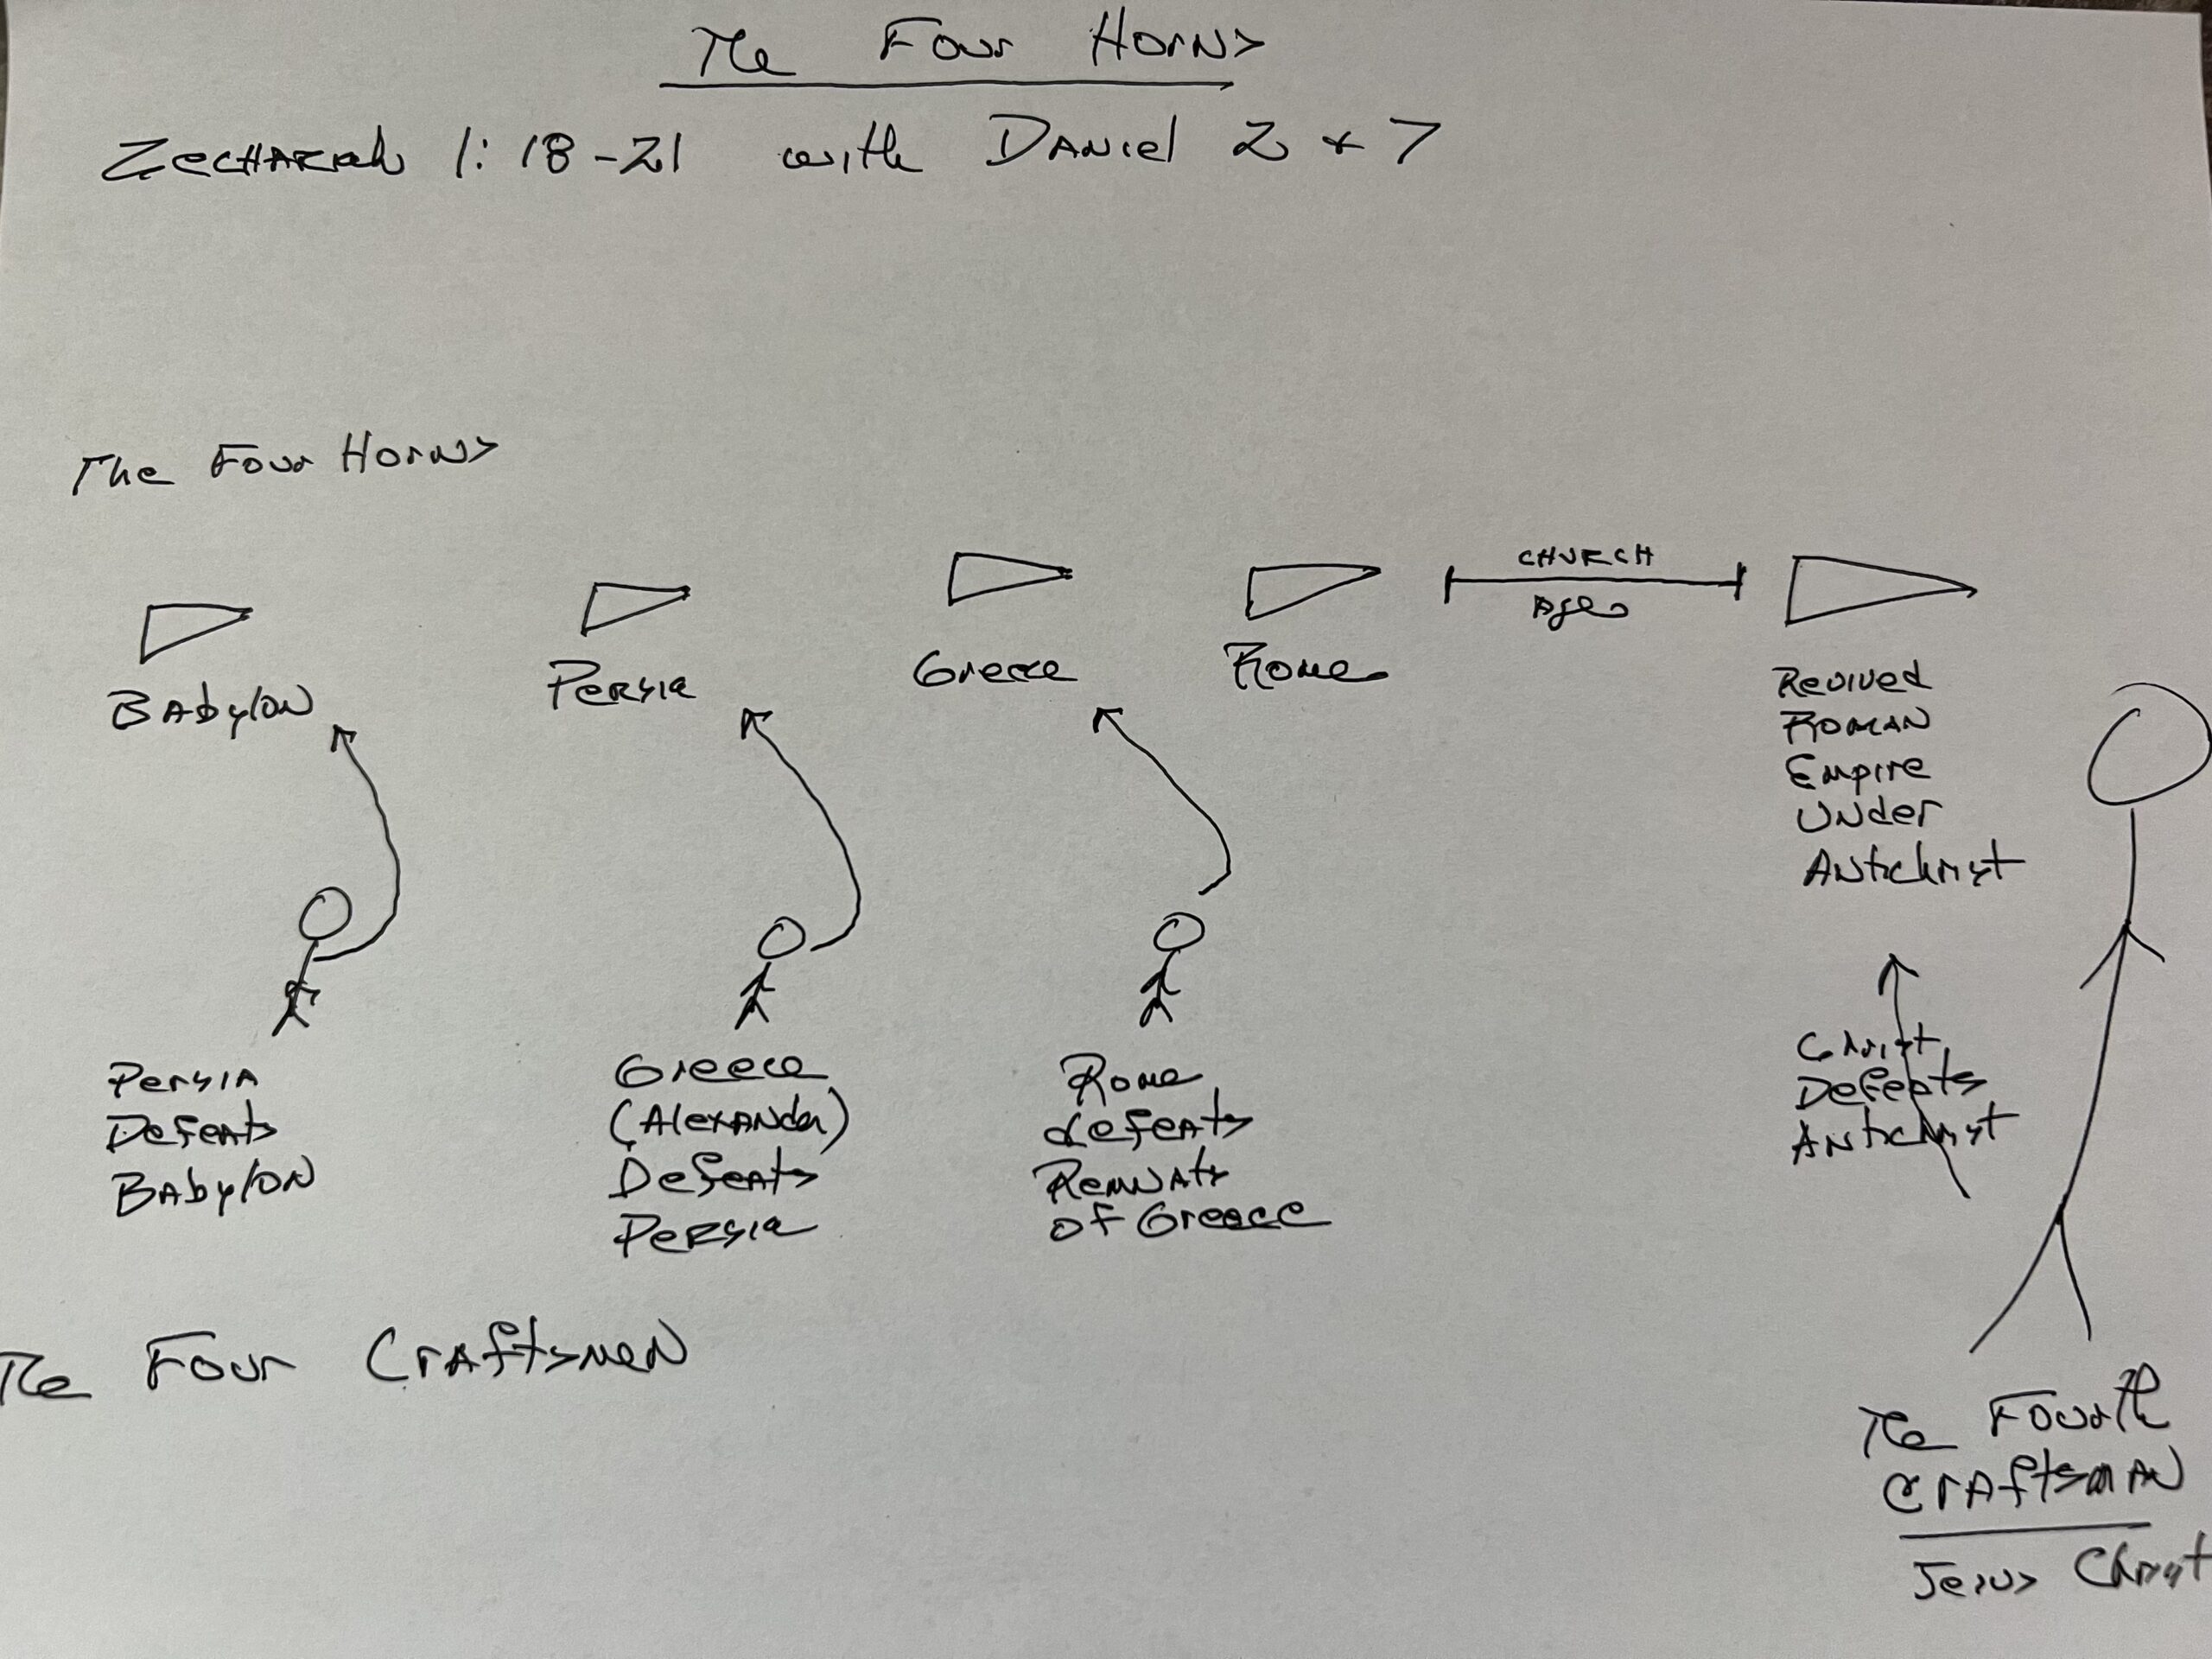 The Four Horns
Zechariah 1:18-21 with Daniel 2 + 7
The Four Horns
Babylon
Persia
Greece
Rome
CHURCH
Age
Revived
Roman
Empire
Under
Antichrist
Persia
Defeats
Babylon
Greece
(Alexander)
Defeats
Persia
Rome
defeats
Remnats
of Greece
Christ
Defeats
Antichrist
The Four Craftsmen
The Fourth
Craftsman
Jesus Christ